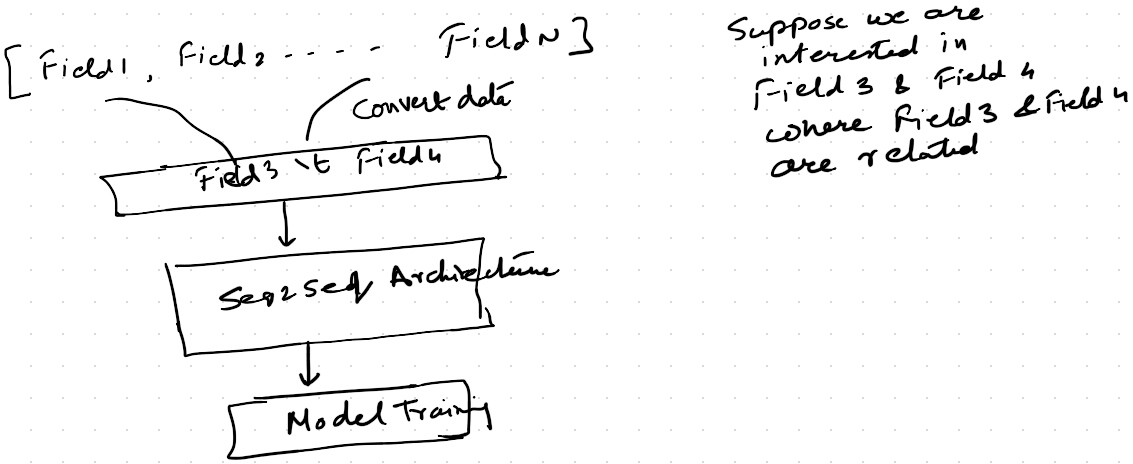 [ Field1, Field2 ----- FieldN ]
Convert data
Field3 \t Field4
Seq2Seq Architecture
Model Training
Suppose we are
interested in
Field 3 & Field 4
where Field3 & Field 4
are related